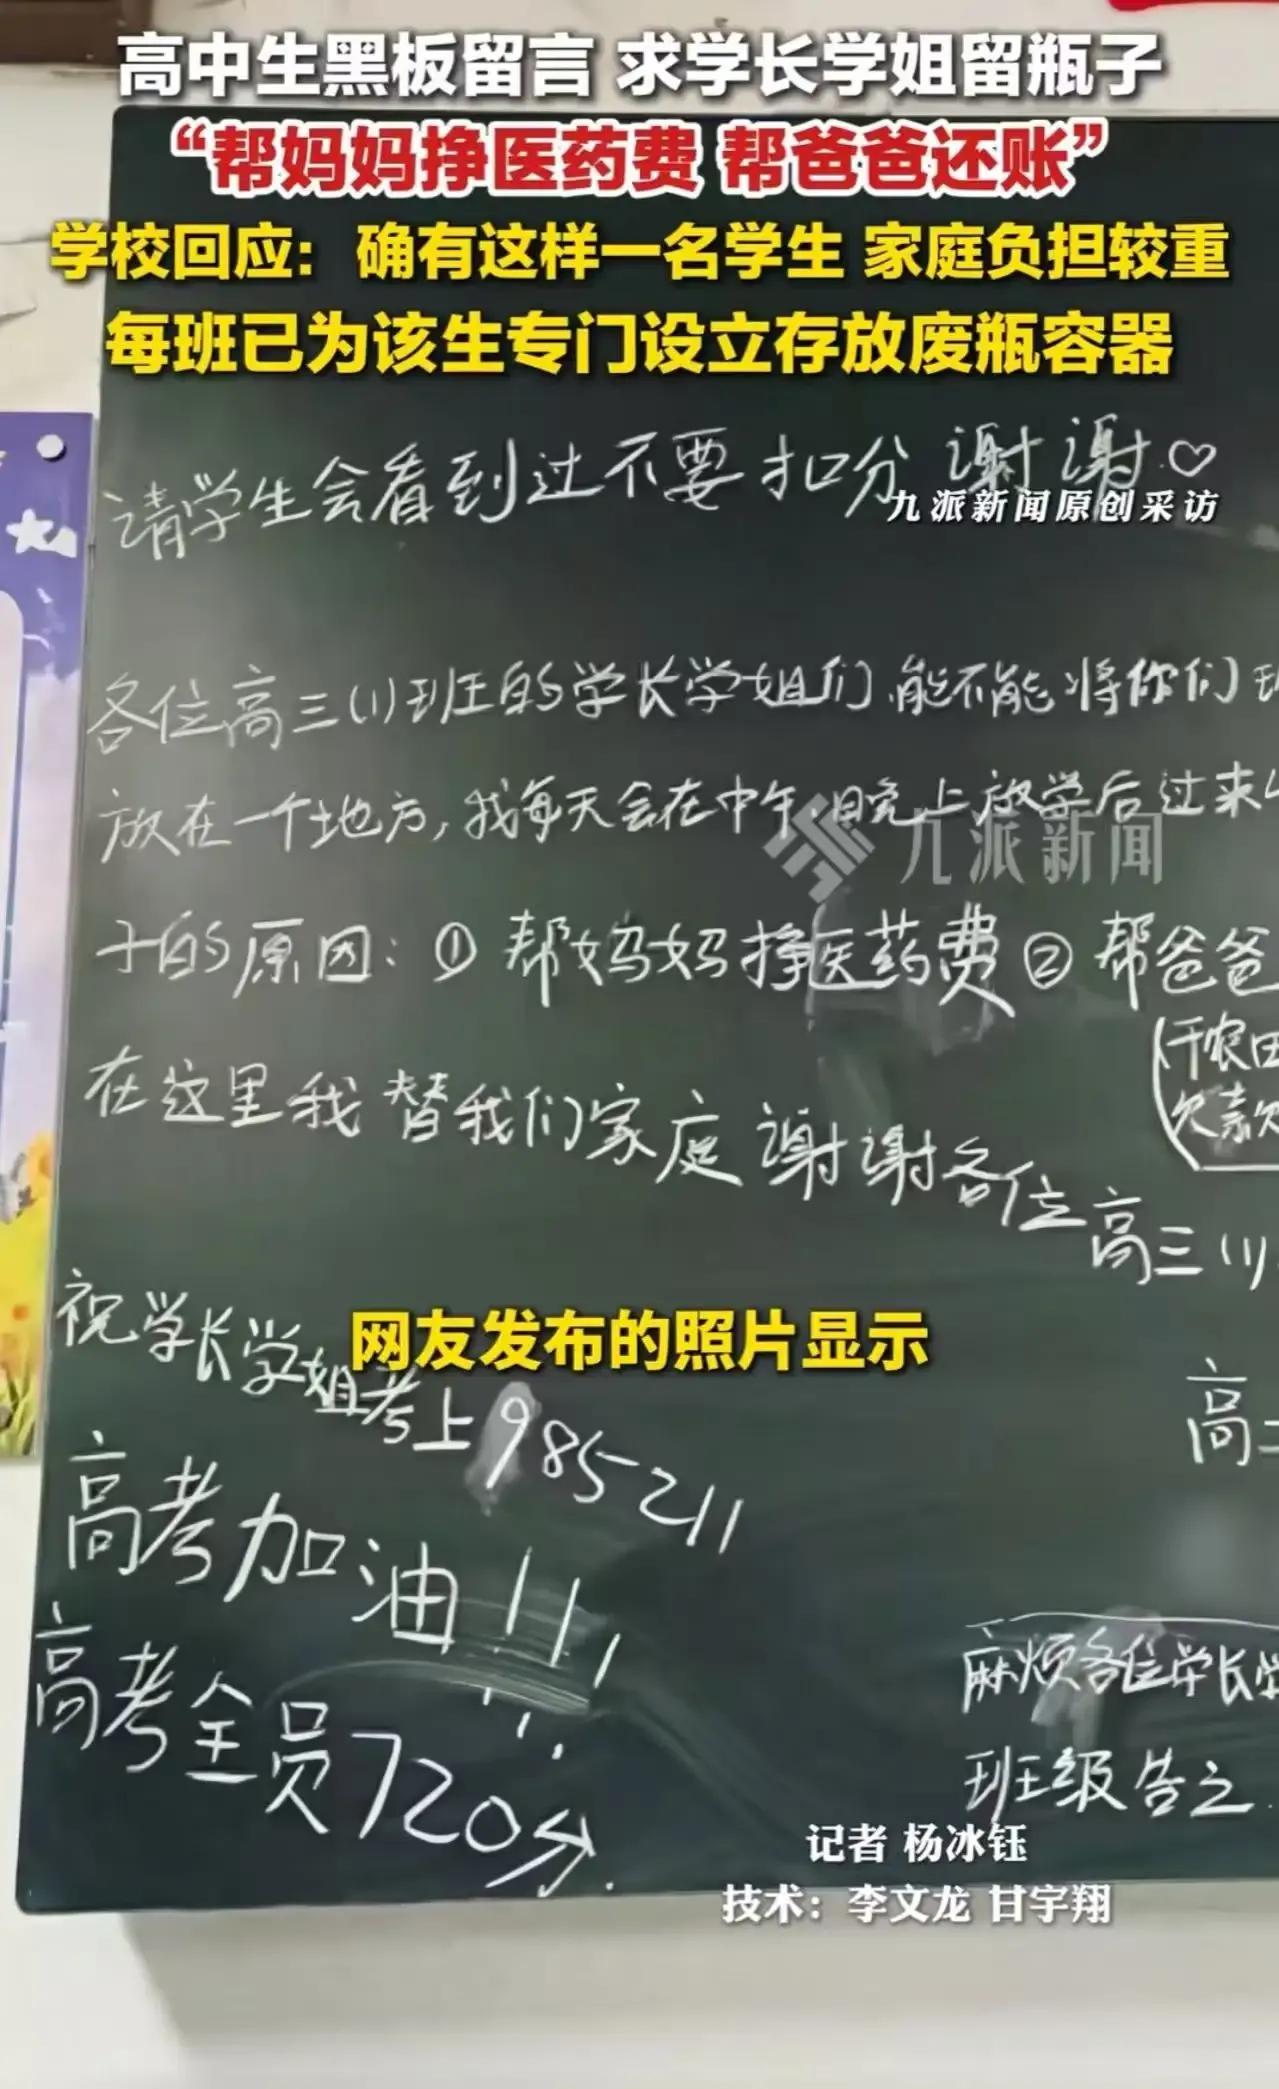 高中生黑板留言 求学长学姐留瓶子
“帮妈妈挣医药费 帮爸爸还账”
学校回应：确有这样一名学生 家庭负担较重
每班已为该生专门设立存放废瓶容器
请学生会看到过不要扣分 谢谢♡
九派新闻原创采访
各位高三(1)班的学长学姐们,能不能将你们
放在一个地方,我每天会在中午,晚上放学后过来
九派新闻
子的原因:①帮妈妈挣医药费②帮爸爸
(干农田
欠款
在这里我替我们家庭谢谢各位高三(1)
祝学长学姐考上985211
网友发布的照片显示
高考加油!!!
高考全员720分.
麻烦各位学长
班级告之
记者 杨冰钰
技术：李文龙 甘宇翔